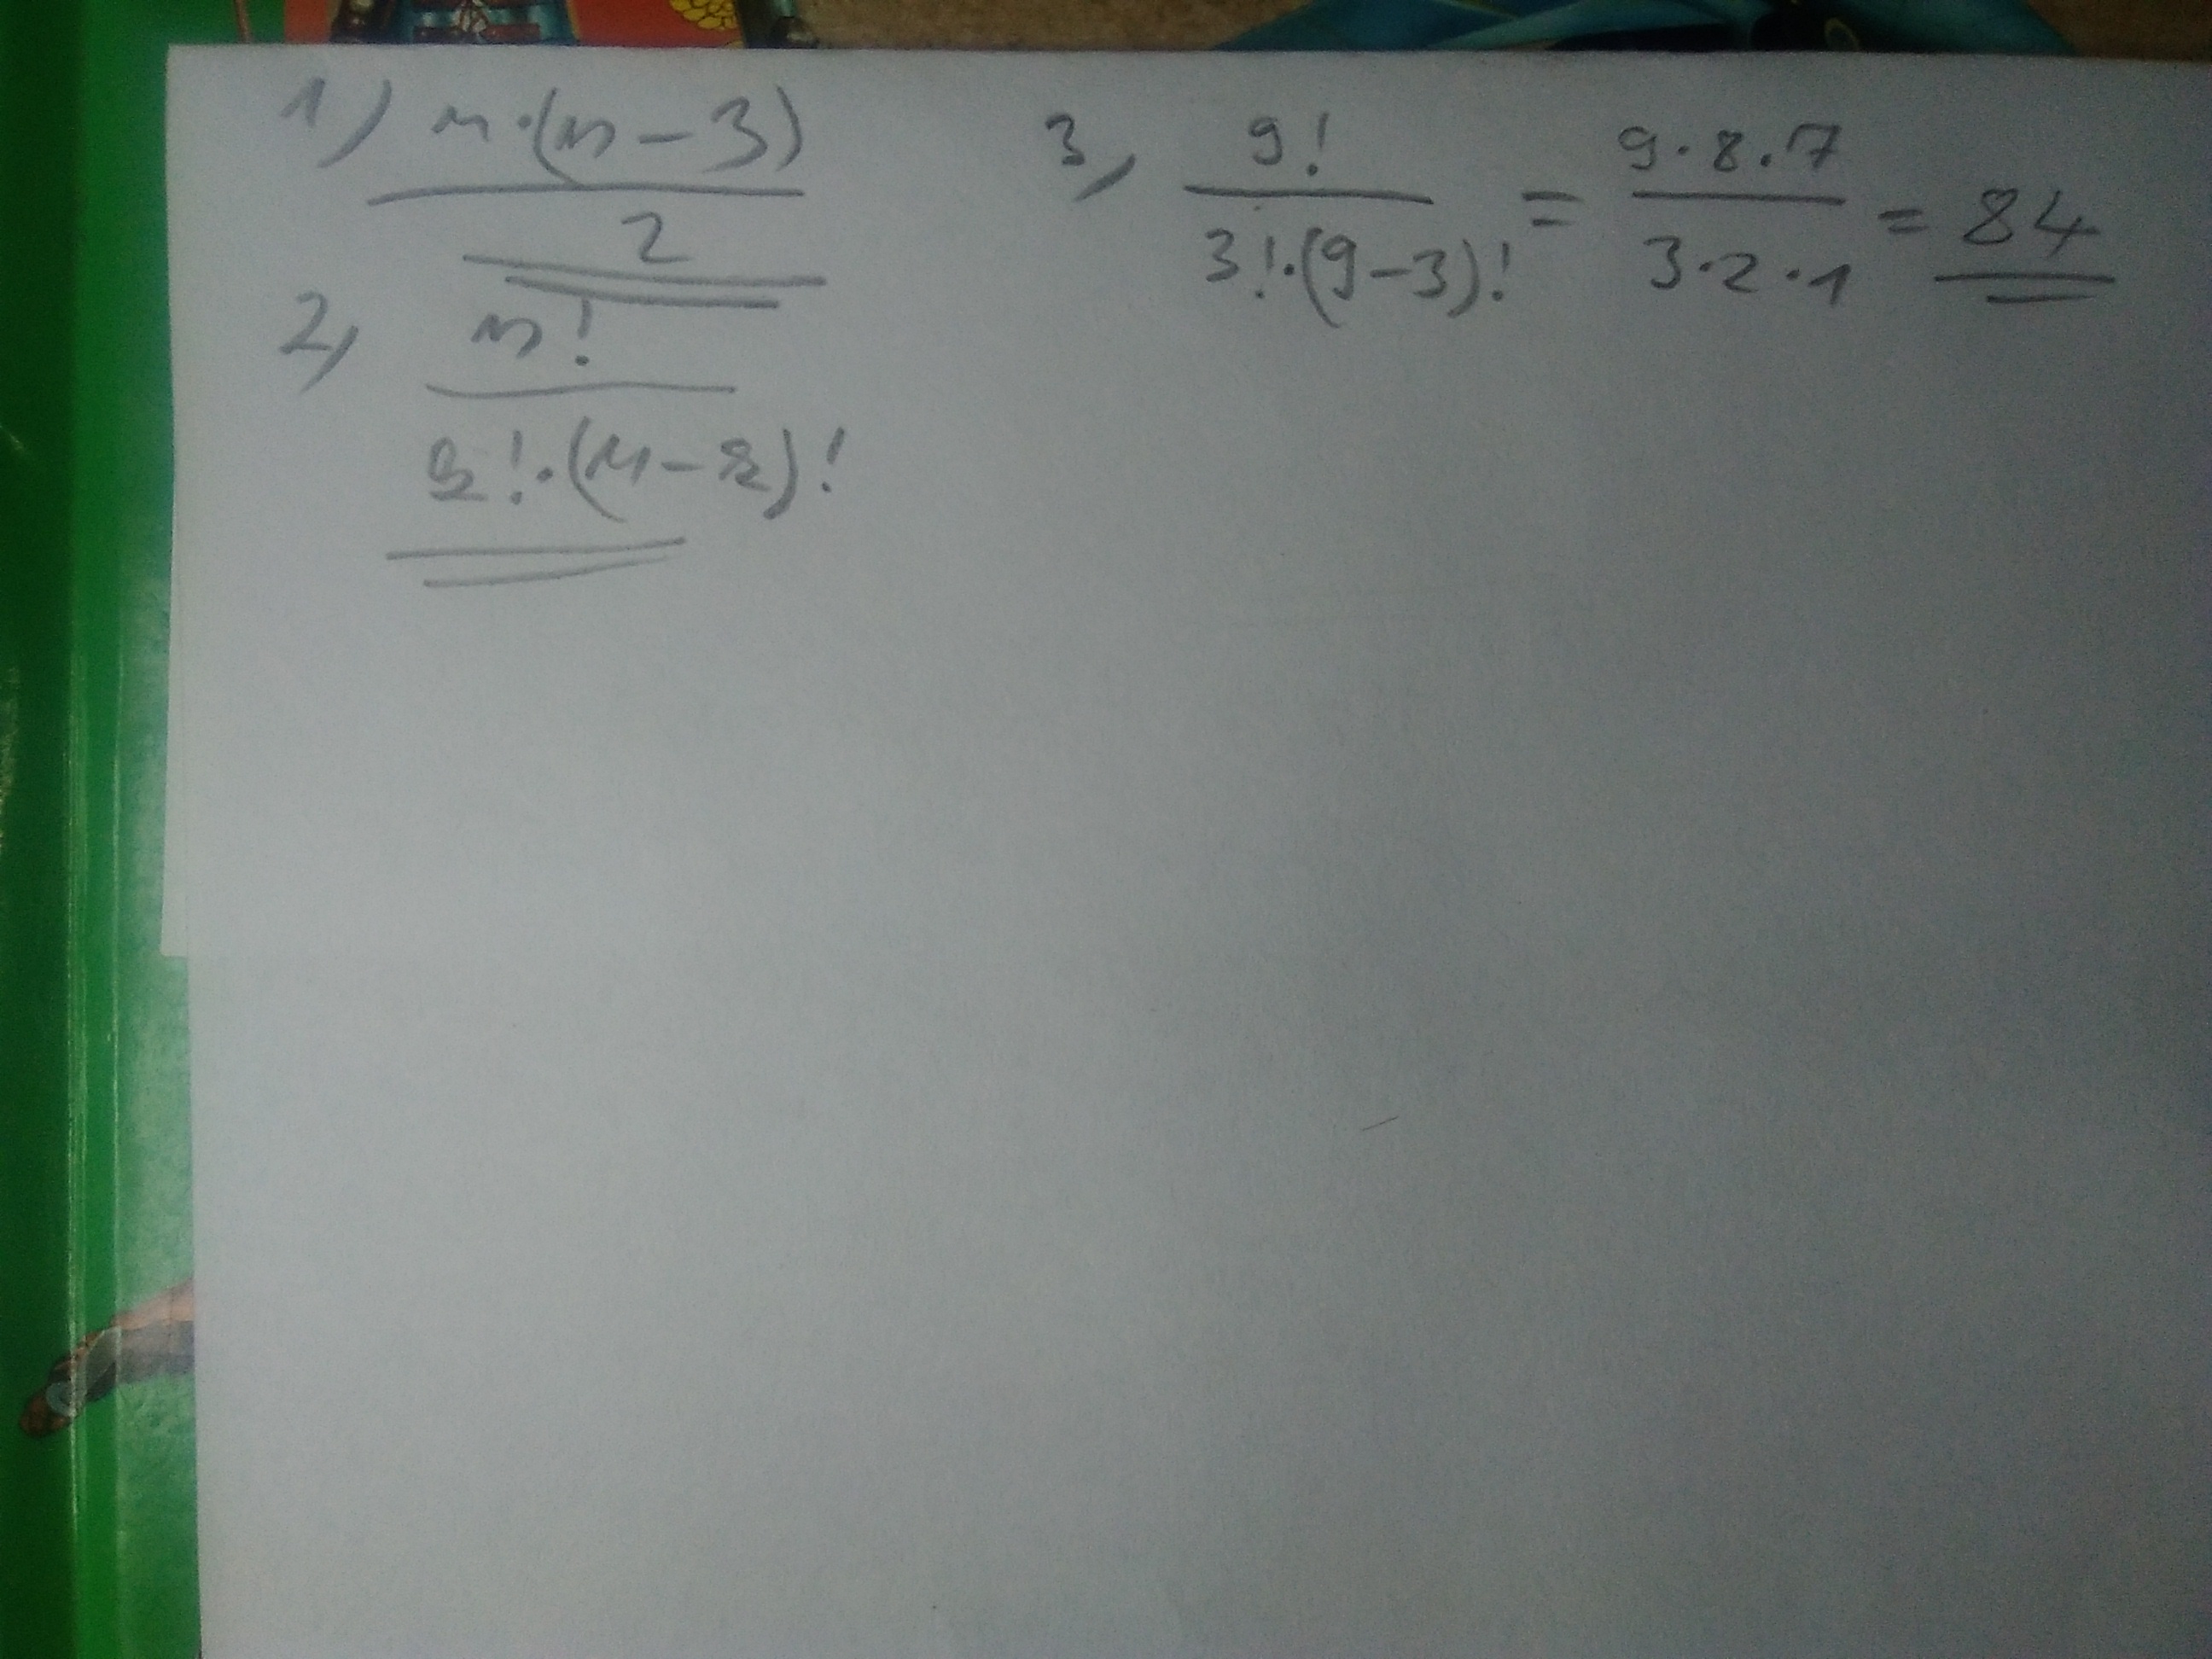 1) n·(n-3)
2
2, n!
k!·(n-k)!
3, 9! / 3!·(9-3)! = 9·8·7 / 3·2·1 = 84